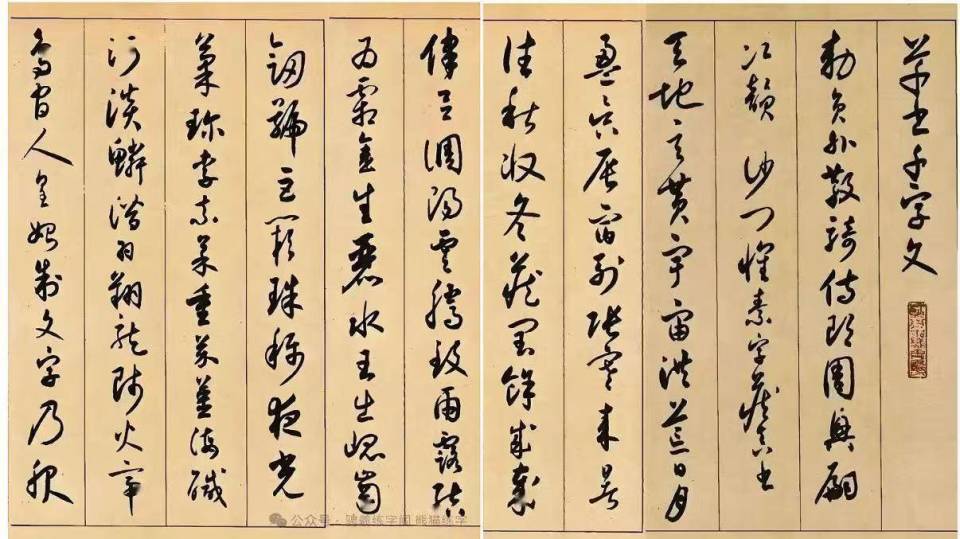 草書千字文
勅員外散騎侍郎周興嗣
次韻 沙门懷素字藏真書
天地玄黄宇宙洪荒日月
盈昃辰宿列張寒来暑
往秋收冬藏閏餘成歲
律吕調陽雲騰致雨露結
为霜金生麗水玉出崐崗
劒號巨闕珠稱夜光
菓珍李柰菜重芥薑海鹹
河淡鱗潜羽翔龍師火帝
鳥官人皇始制文字乃服
公众号 · 练字间 熊猫练字